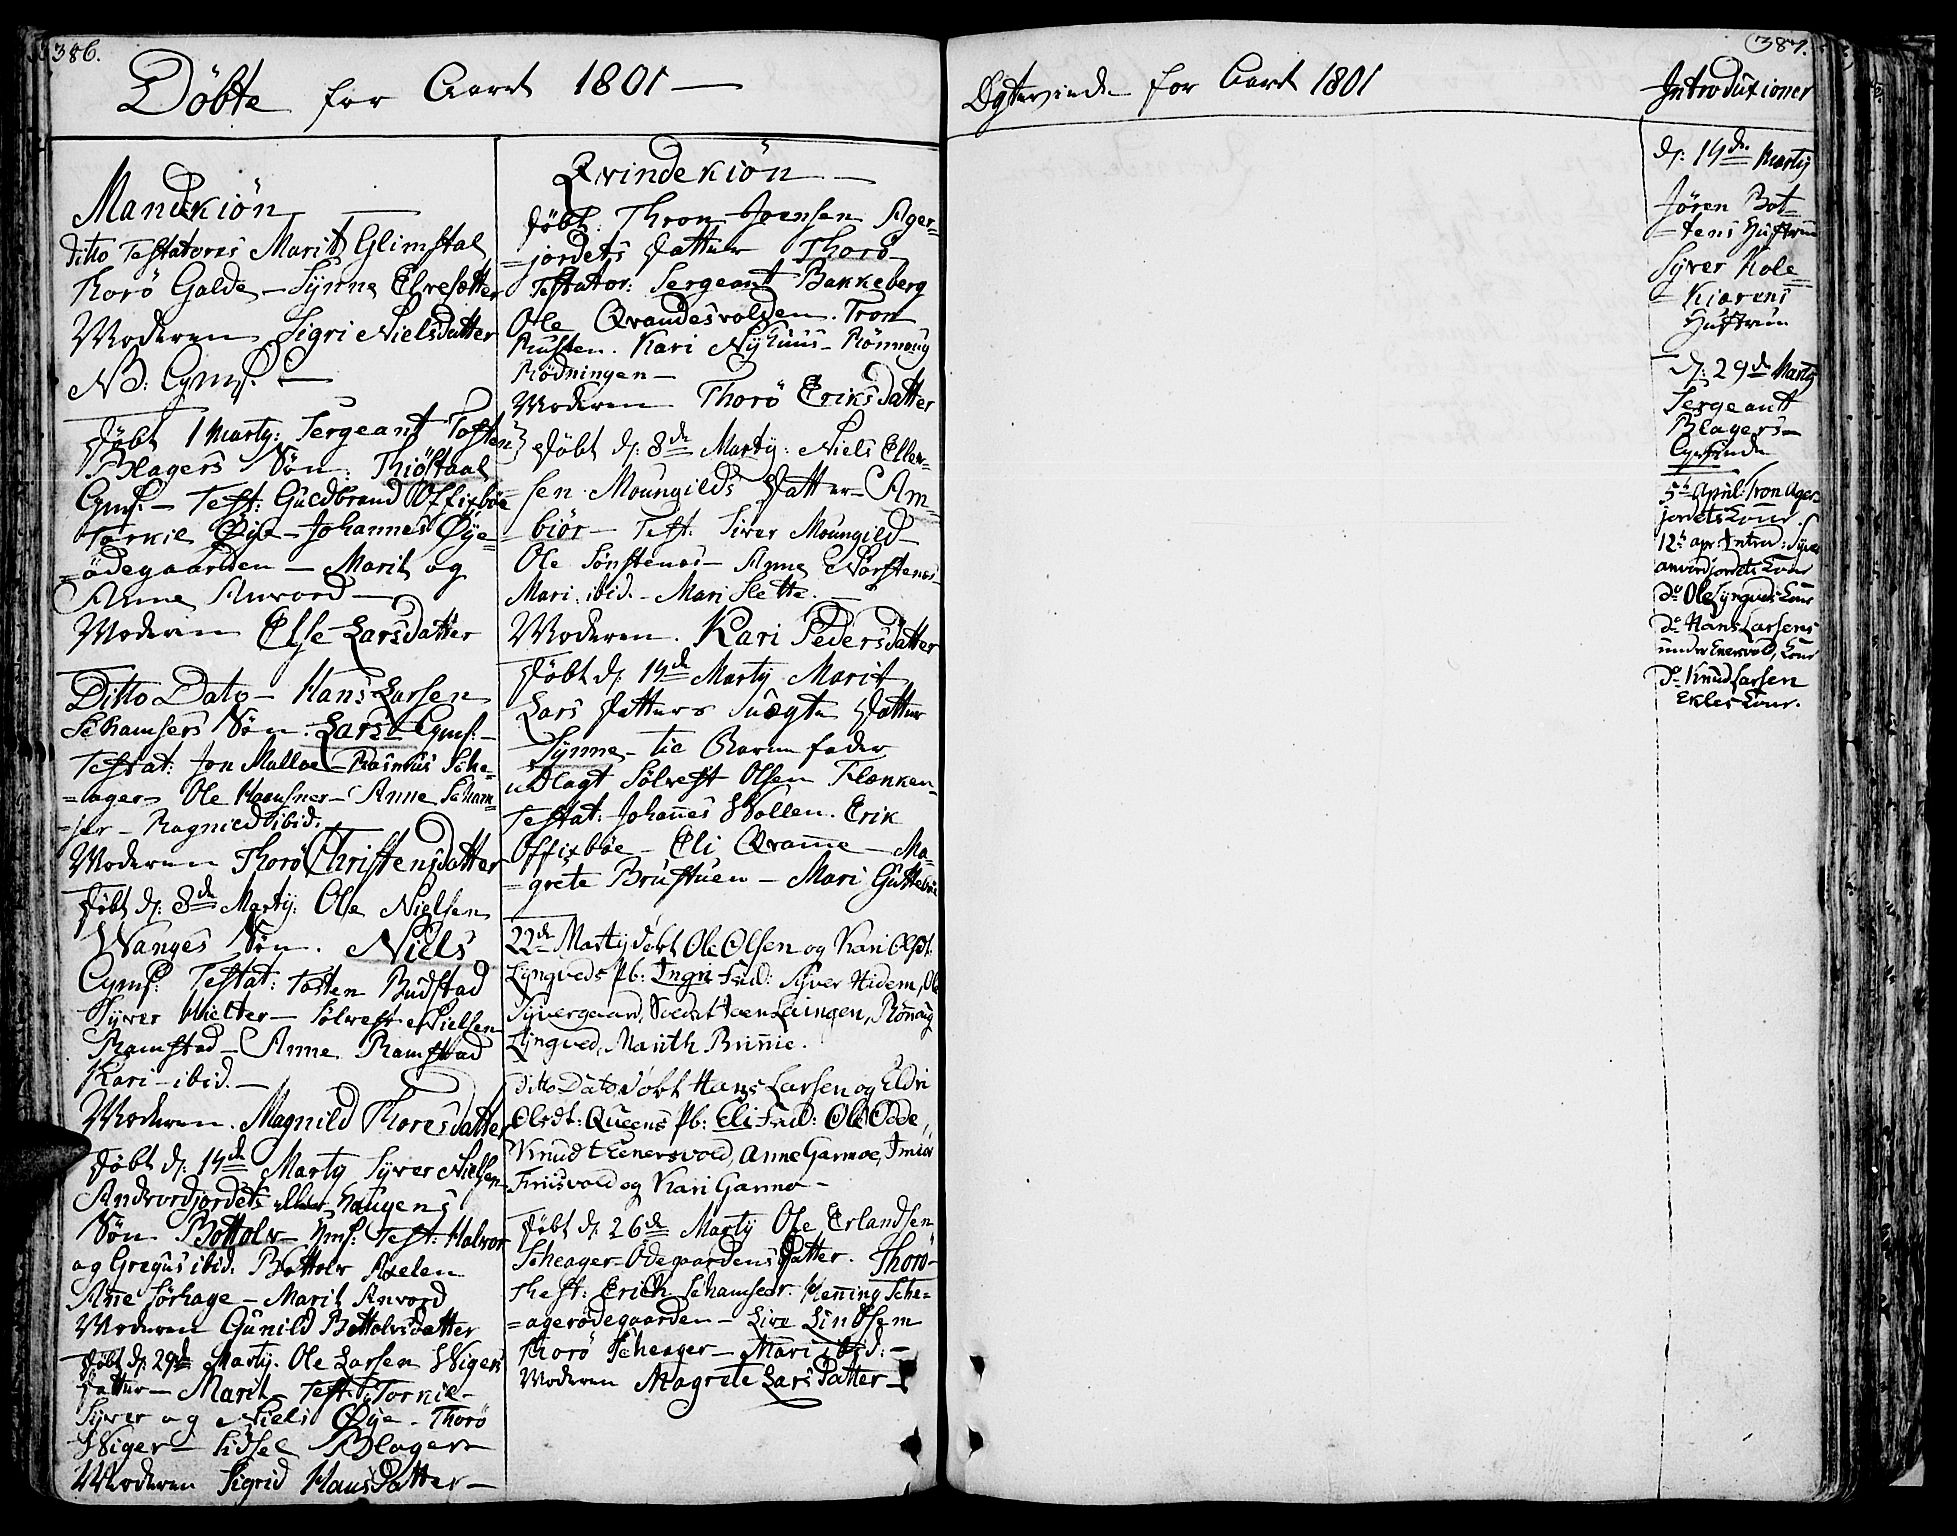 386.
Döbte for Aaret 1801 —
Mandkiön
ditto Testatores Marit Glimstal
Thorö Galde – Synne Elvesetter
Moderen Sigri Nielsdatter
NB: Gyms.
Döbt 1 Marty: Sergeant Tosten
Blagers Søn: Thiöstaal
Gyms. – Test: Guldbrand Offixböe
Torkil Øye – Johannes Øye=
=ödegaarden – Marit og
Anne Anvord –
Moderen Else Larsdatter
Ditto Dato – Hans Larsen
Schamsers Søn: Lars – Gyms: –
Testat: Jon Molloe – Rasmus Sche=
=ager Ole Hamsner – Anne Scham=
=ser – Ragnild ibid:
Moderen Thorö Christensdatter
Döbt d: 8de Marty: Ole Nielsen
Wanges Søn. Niels
Gyms: Testat: Tosten Budstad
Syver Mielter – Sølvest Nielsen
Ramstad – Anne Ramstad
Kari – ibid. –
Moderen. Magnild Thoresdatter
Döbt d: 14de Marty Syver Nielsen
Andvordjordets eller Haugens
Søn Bottolv – Gms: Test: Halvor
og Gregus ibid: Bottolv Axelen
Anne Sörhage – Marit Anvord
Moderen Gunild Bottolvsdatter
Döbt d: 29de Marty. Ole Larsen Wigers
Datter – Marit – Test: Torkil –
Syver og Niels Øye. Thorö
Wiger – Sidsel Blager
Moderen Sigrid Hansdatter –
Qvindekiön —
Döbt: Thron Joensen Ager=
=jordets Datter Thorö
Testator: Sergeant Bakkeberg
Ole Qvandesvolden. Tron
Rusten. Kari Nyhuus – Rönnoug
Rödningen –
Moderen Thorö Eriksdatter
Döbt d: 8de Marty: Niels Eller=
=sen Moungilds Datter – Am=
=biör – Test. Siver Moungild
Ole Sønstenes – Anne Norstenes –
Mari ibid. – Mari Slette. –
Moderen. Kari Pedersdatter
Döbt d: 14de Marty Marit
Lars Datters Uægte Datter
Synne – til Barnefader
udlagt Sølvest Olsen Flænken.
Testat: Johanes Wollen. Erik
Offixböe – Eli Qvame – Ma=
=grete Brustuen – Mari Gutteböe
22de Marty døbt Ole Olsen og Kari Olsdt.
Lyngveds Pb: Ingri Fad: Syver Hidem, Ole
Syvergaard, Soldat Hoen Leiningen, Rönnaug
Lyngved, Marith Brimie.
Ditto Dato døbt Hans Larsen og Eldri
Olsdt: Queens Pb: Eli Fad: Ole Odde,
Knudt Enersvold, Anne Garmoe,
Friisvold og Kari Garmo –
Döbt d: 26de Marty Ole Erlandsen
Scheager-Ödegaardens Datter. Thorö
Thest: Erich Schamser. Henning Sche=
=agerødegaarden – Live Lindsem
Thorö Scheager – Mari ibid: –
Moderen Magrete Larsdatter –
387.
Ægtevinde for Aaret 1801
Introduxioner
d: 14de Marty
Jören Bot=
=tens Hustrue
Syver Kole=
=Kiærens
Hustrue
d: 29de Marty
Sergeant
Blagers
Qvinde
5te April: Tron Ager=
jordets Kone.
12te apr: Introd: Syver
anvordjordets Kone
do Ole Lyngveds Kone
do Hans Larsens
under Enersvold, Kone
do Knud Larsen
Ekles Kone.